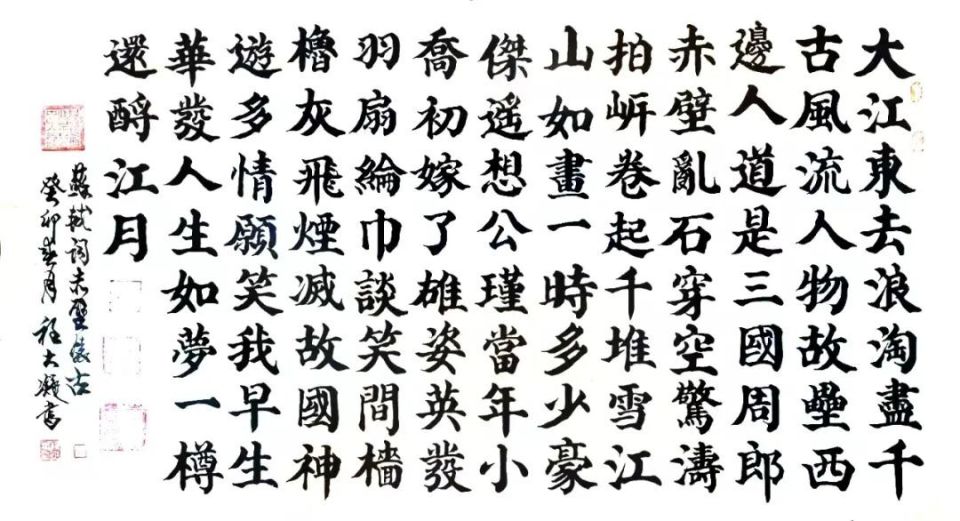 大江東去浪淘盡千
古風流人物故壘西
邊人道是三國周郎
赤壁亂石穿空驚濤
拍岍卷起千堆雪江
山如畫一時多少豪
傑遥想公瑾當年小
喬初嫁了雄姿英發
羽扇綸巾談笑間檣
櫓灰飛煙滅故國神
遊多情願笑我早生
華發人生如夢一樽
還酹江月
蘇軾詞赤壁懷古
癸卯春月 大書